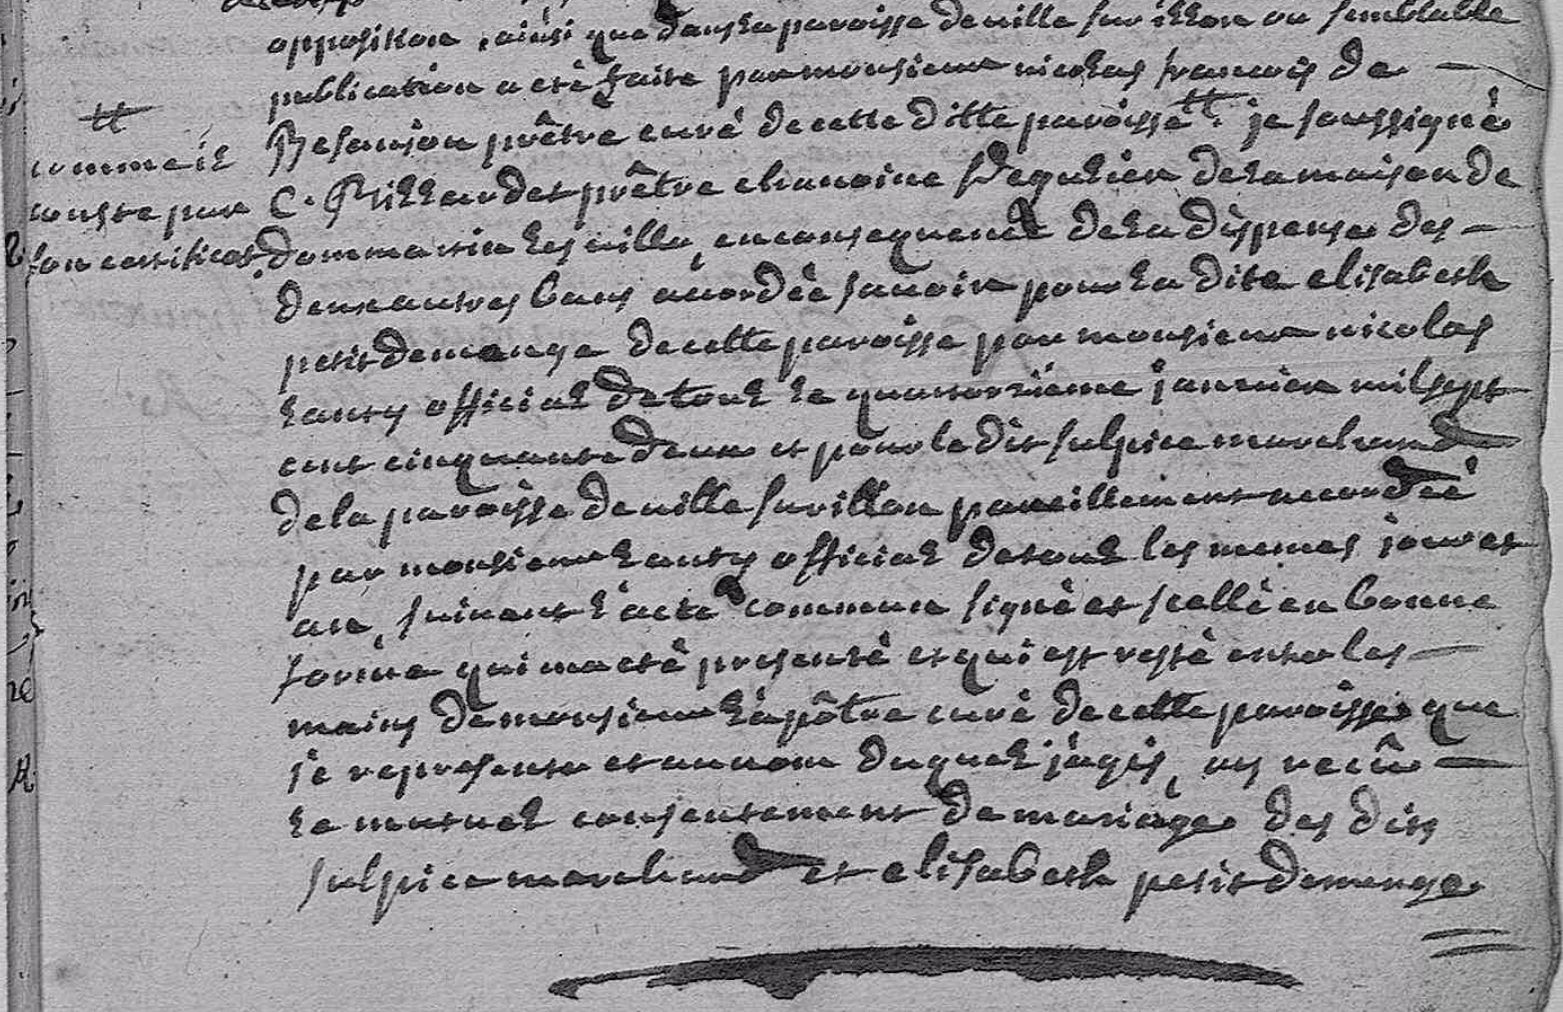 opposition, ainsi que dans la paroisse de ville sur illon ou semblable
publication a eté faite par monsieur nicolas francois de
Besanson prêtre curé de cette ditte paroisse #. je soussigné
#
comme il
conste par
son certificat.
C. Billaudet prêtre chanoine regulier de la maison de
dommartin les ville, en consequence de la dispense des
deux autres bans acordée savoir pour la dite elisabeth
petit demenge de cette paroisse par monsieur nicolas
official de toul le quatorzième janvier mil sept
cent cinquante deux et pour le dit sulpice marchand
de la paroisse de ville sur illon pareillement accordée
par monsieur official de toul les memes jour et
an, suivant l'acte commun signé et scellé en bonne
forme qui m'a eté presenté et qui est resté entre les
mains de monsieur lapôtre curé de cette paroisse que
je represente et au nom duquel j'agis, ay reçû
le mutuel consentement de mariage des dits
sulpice marchand et elisabeth petit demenge.